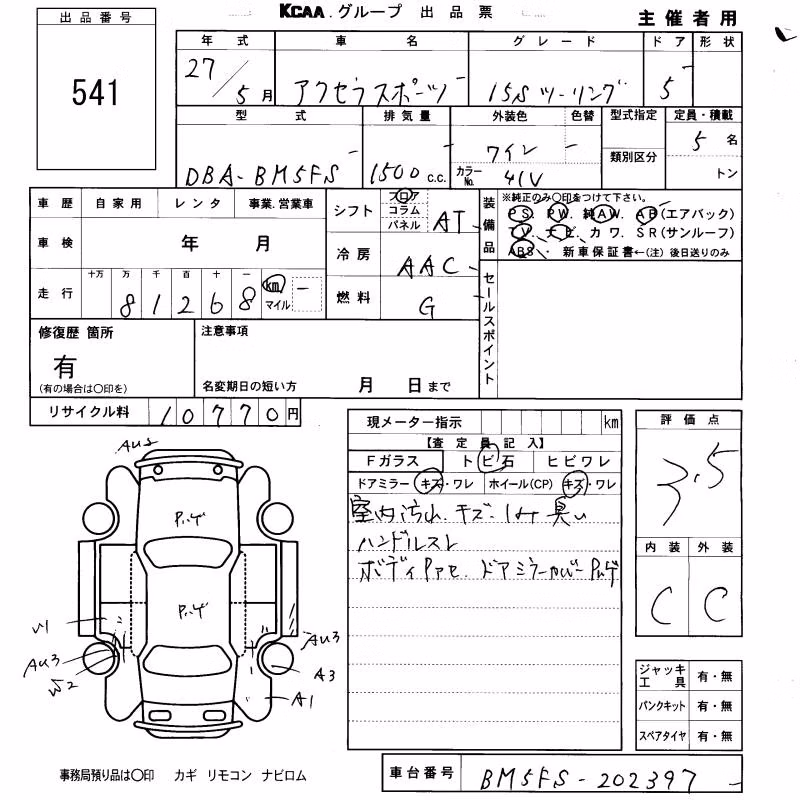 KCAA.グループ 出品票
主催者用
出品番号
541
年式 車名 グレード ドア 形状
27/5月 アクセラスポーツ 15Sツーリング 5
型式 排気量 外装色 色替 型式指定 定員・積載
DBA-BM5FS 1500c.c. ワイン - 類別区分 5名
カラーNo. 41V トン
車歴 自家用 レンタ 事業.営業車
車検 年 月
走行 十万 万 千 百 十 一
81268 km マイル -
シフト フロア コラム パネル AT
冷房 AAC
燃料 G
装備品
※純正のみ〇印をつけて下さい。
PS. PW. 純AW. AB(エアバック)
TV. ナビ. カワ. SR(サンルーフ)
ABS. 新車保証書←(注)後日送りのみ
セールスポイント
修復歴 箇所
有
(有の場合は〇印を)
注意事項
名変期日の短い方 月 日まで
リサイクル料 10770円
現メーター指示 km
【査定員記入】
Fガラス トビ石 ヒビワレ
ドアミラー キズ・ワレ ホイール(CP) キズ・ワレ
室内汚れ.キズ.シミ臭い
ハンドルスレ
ボディPアセ.ドアミラーカバーPハゲ
評価点
3.5
内装 外装
C C
AU2
Pハゲ
Pハゲ
U1
AU3
W2
AU3
A3
A1
ジャッキ工具 有・無
パンクキット 有・無
スペアタイヤ 有・無
事務局預り品は〇印 カギ リモコン ナビロム
車台番号 BM5FS-202397